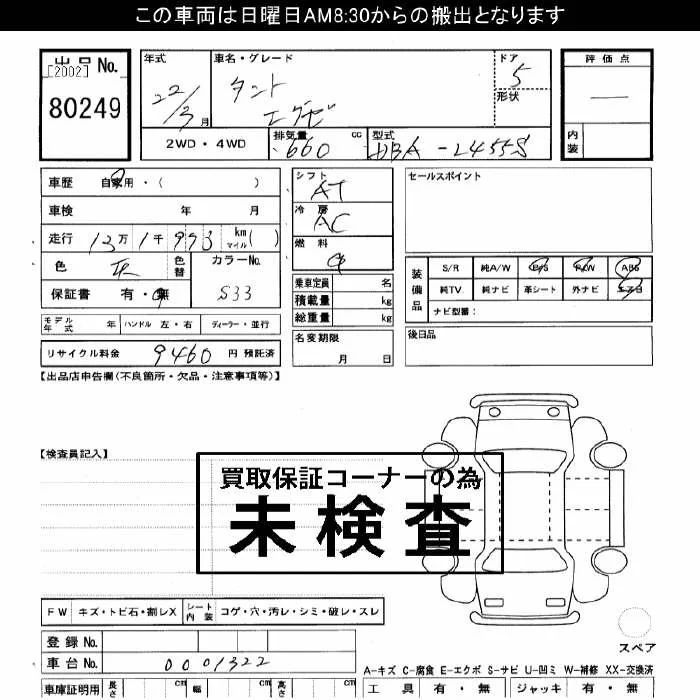 この車両は日曜日AM8:30からの搬出となります
出品 No.
[2002]
80249
年式 車名・グレード ドア
22/3 月 タント エグゼ 5
形状
2WD・4WD 排気量 660 cc 型式 DBA-L455S
評価点
—
内装
車歴 自家用・( )
車検 年 月
走行 13万 1千 973 km マイル ( )
色 灰 色替 カラーNo.
保証書 有・無 S33
モデル年式 年 ハンドル 左・右 ディーラー・並行
リサイクル料金 9460 円 預託済
シフト AT
冷房 AC
燃料
乗車定員 名
積載量 kg
総重量 kg
名変期限
月 日
セールスポイント
装備品 S/R 純A/W P/S P/W ABS
純TV 純ナビ 革シート 外ナビ エアB
ナビ型番:
後日品
【出品店申告欄(不良箇所・欠品・注意事項等)】
【検査員記入】
買取保証コーナーの為
未検査
FW キズ・トビ石・割レX シート内装 コゲ・穴・汚レ・シミ・破レ・スレ
登録No.
車台No. 0001322
車庫証明用 長さ cm 幅 cm 高さ cm
スペア
A-キズ C-腐食 E-エクボ S-サビ U-凹ミ W-補修 XX-交換済
工具 有・無 ジャッキ 有・無